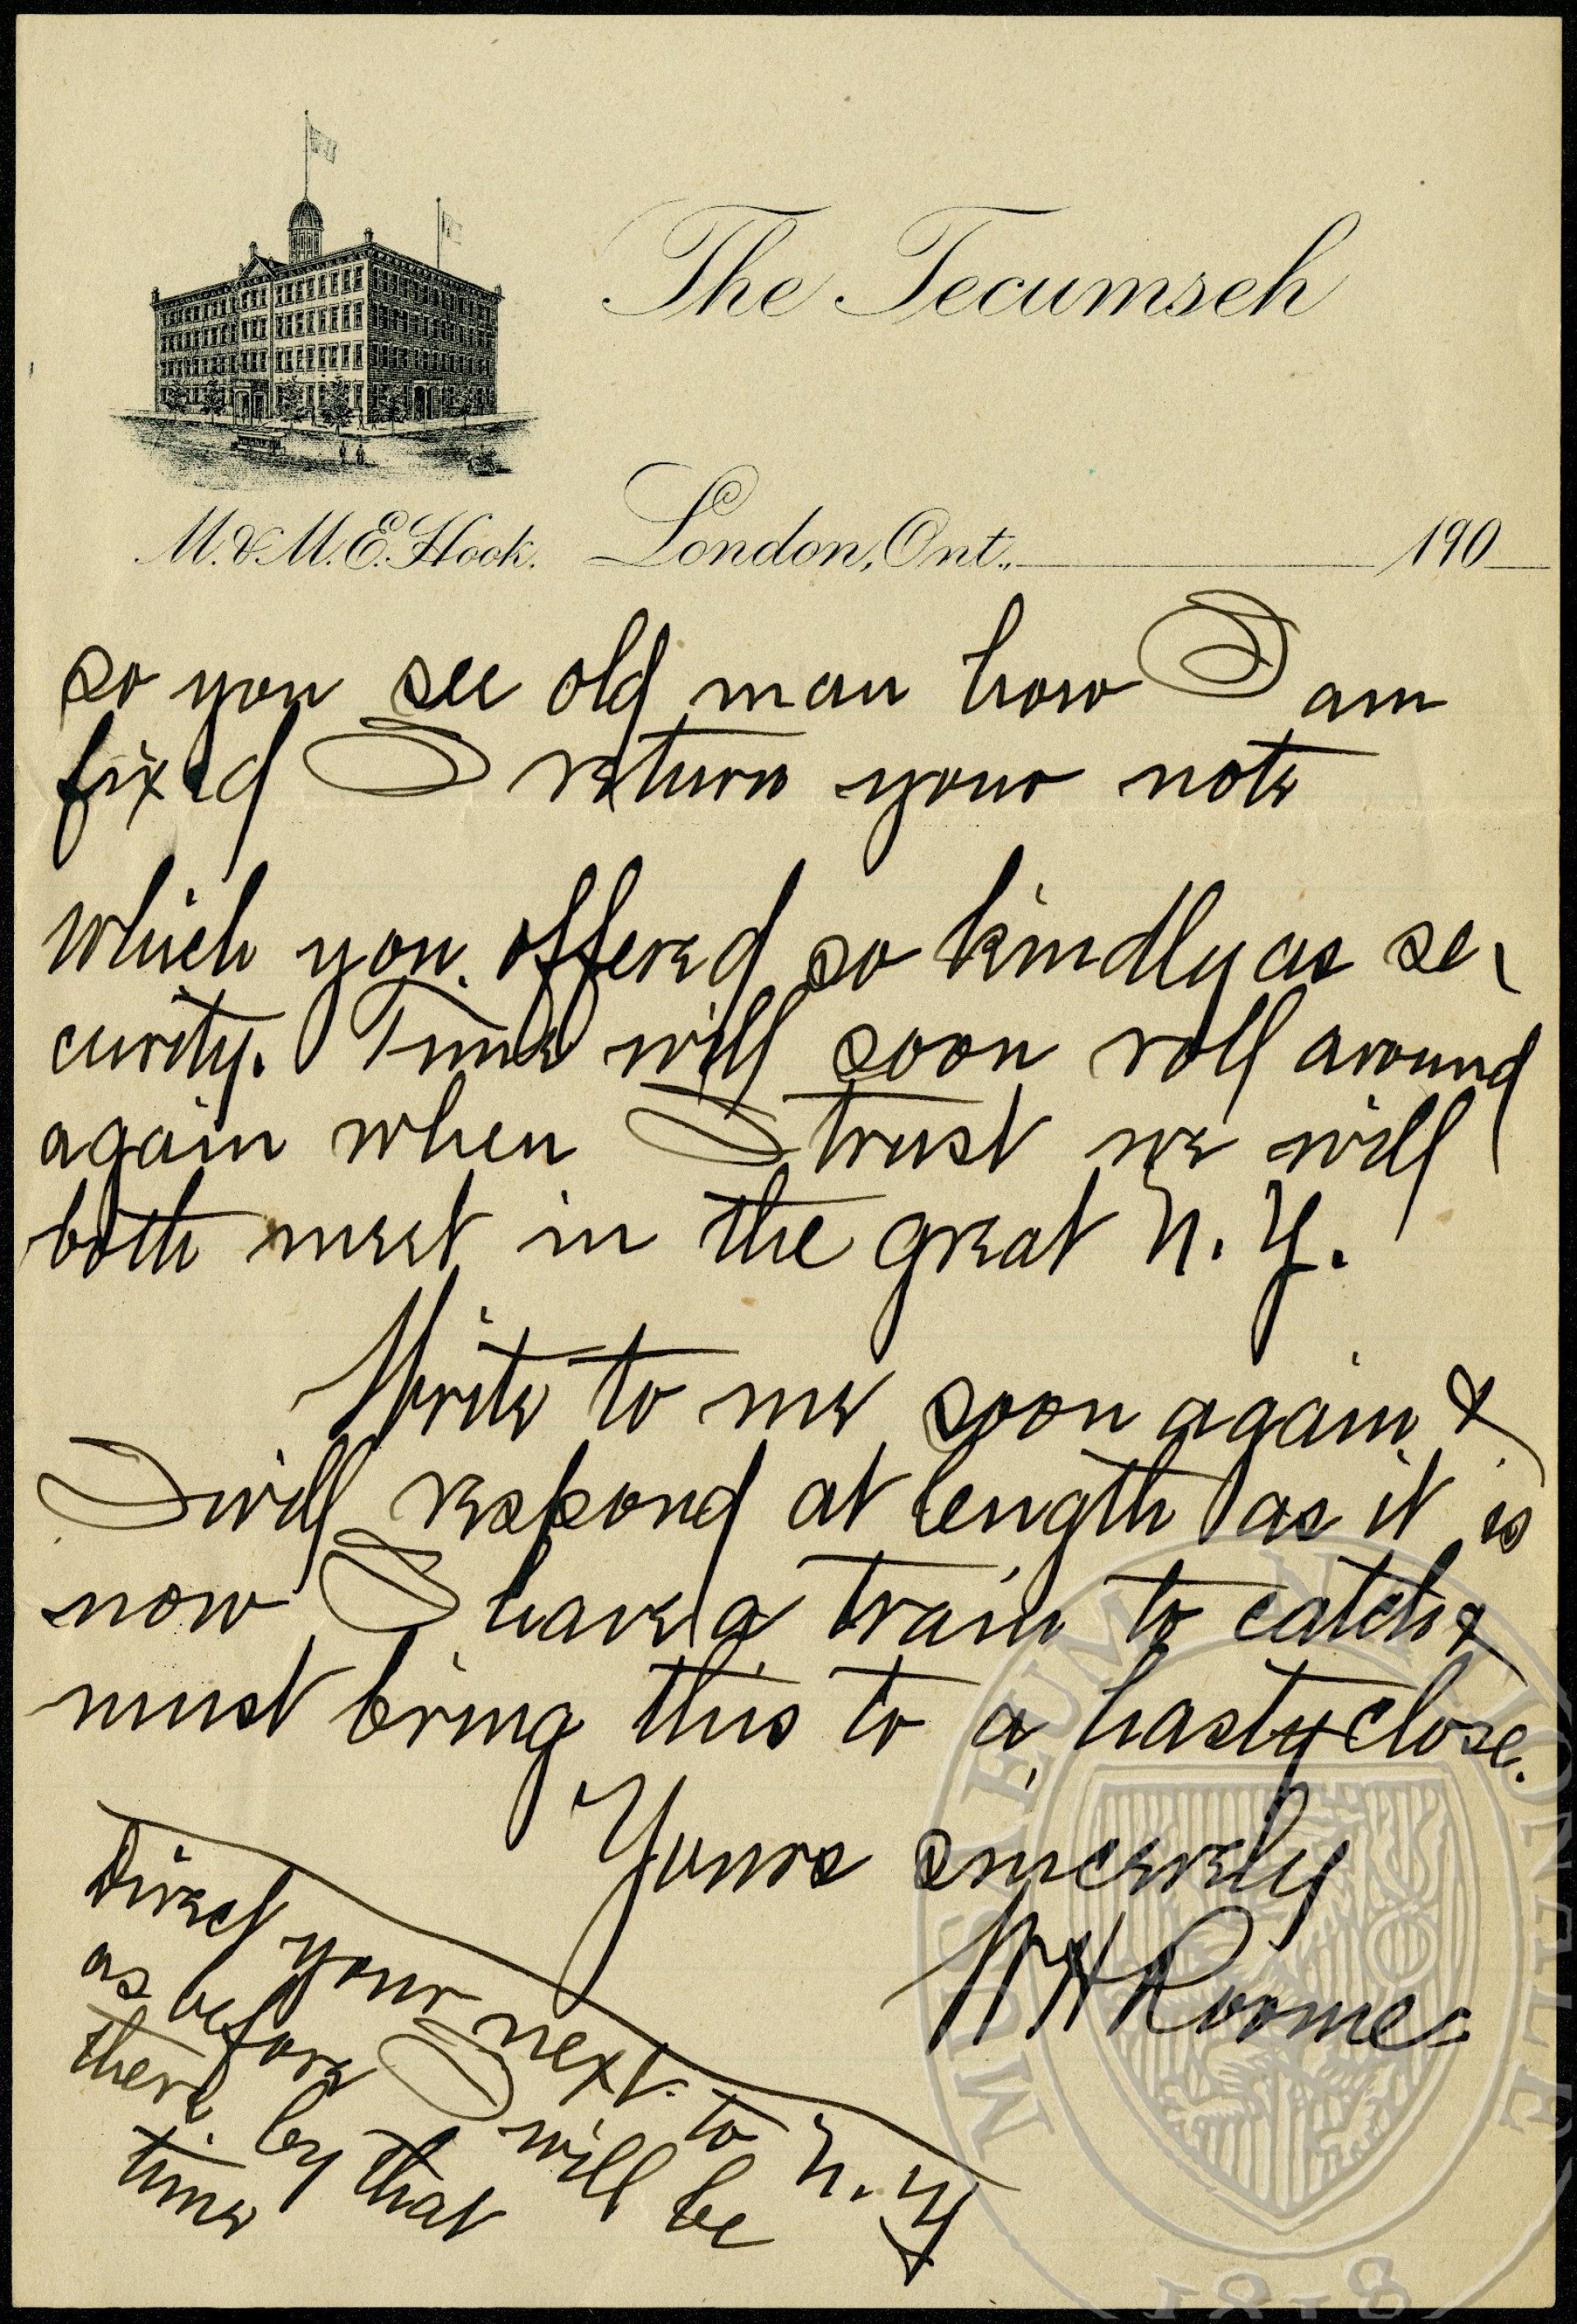 The Tecumseh
M. & M. E. Hook. London, Ont., 190
so you see old man how I am
fixed I return your note
which you offered so kindly as se-
curity. Time will soon roll around
again when I trust we will
both meet in the great N. Y.
Write to me soon again &
I will respond at length as it is
now I have a train to catch &
must bring this to a hasty close.
Yours sincerely
W H Roome
Direct your next to N. Y
as before I will be
there by that
time
MUSEUM NATIONALE
1818